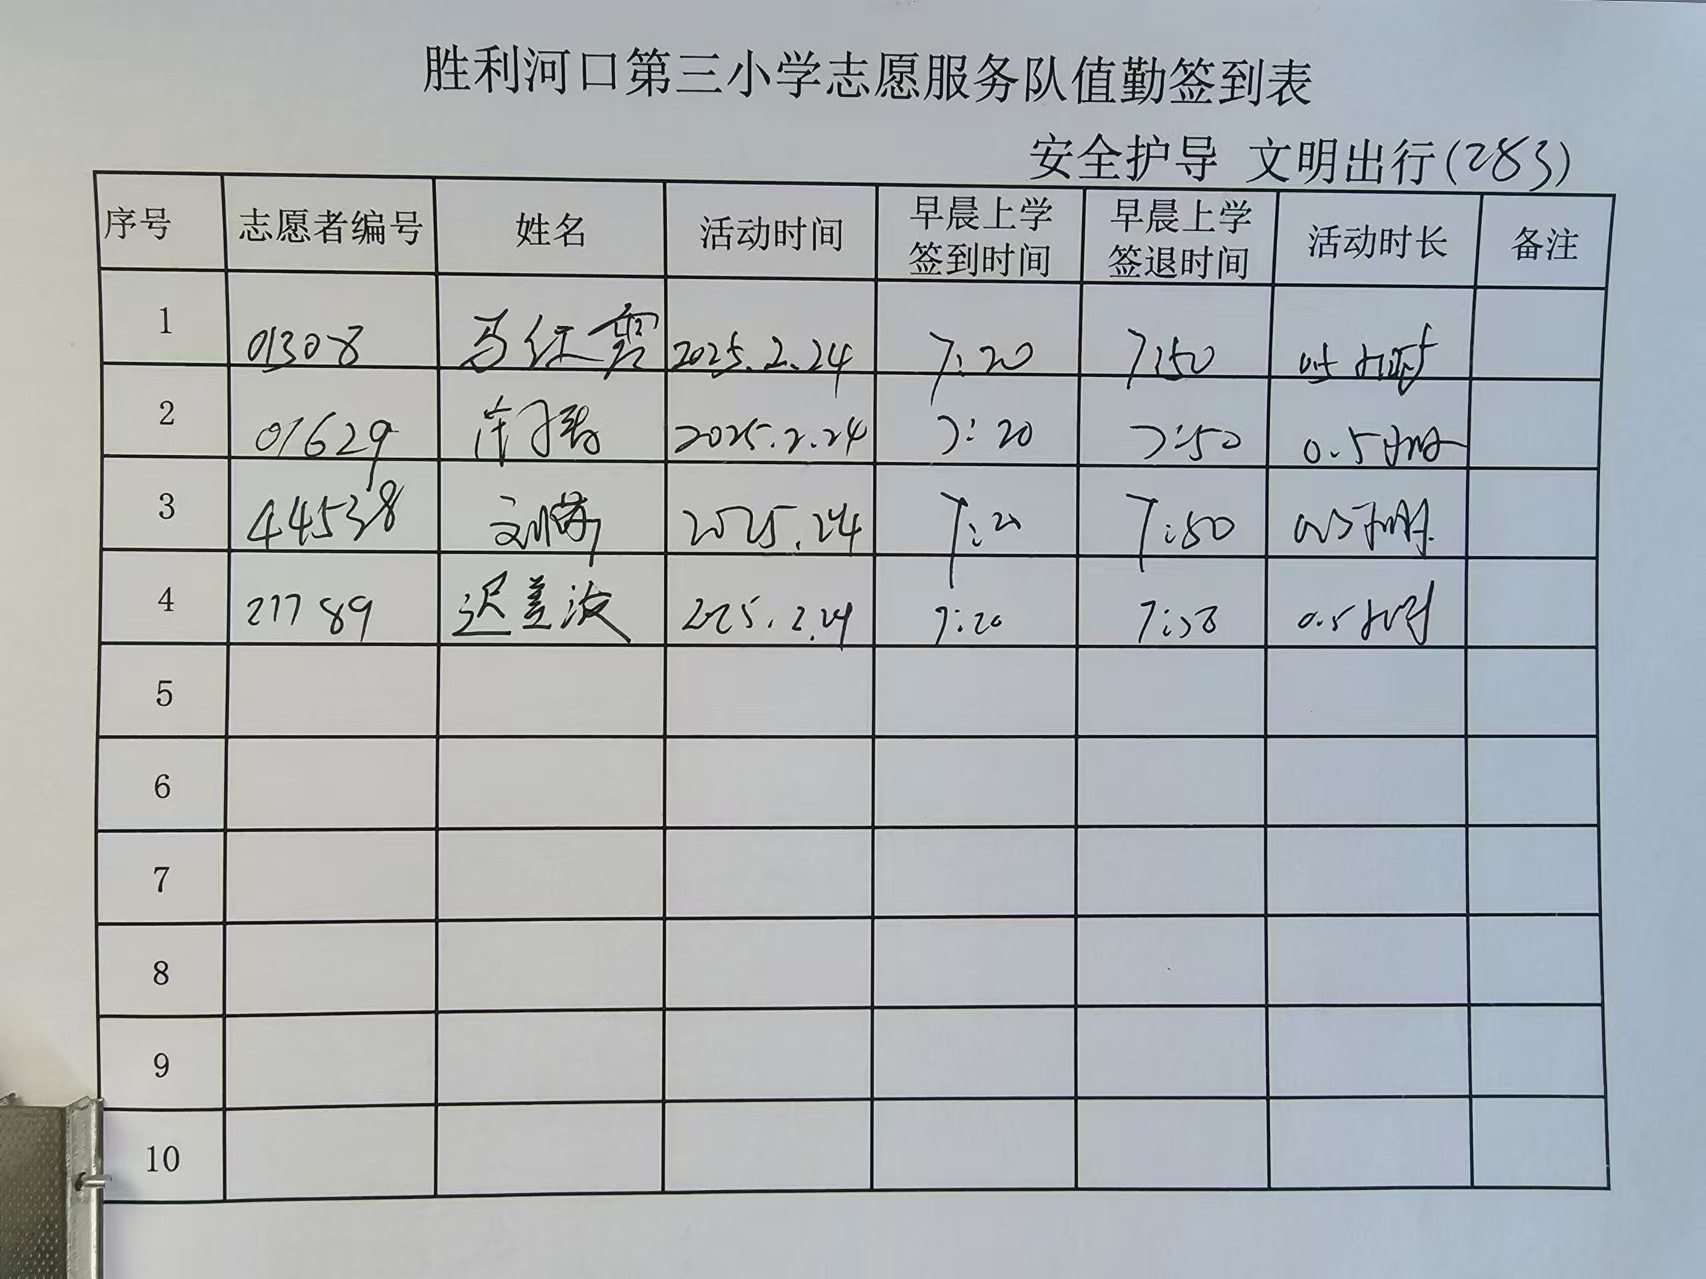 胜利河口第三小学志愿服务队值勤签到表
安全护导 文明出行(283)
序号 志愿者编号 姓名 活动时间 早晨上学签到时间 早晨上学签退时间 活动时长 备注
1 01308 马红霞 2025.2.24 7:20 7:50 0.5小时
2 01629 2025.2.24 7:20 7:50 0.5小时
3 44538 刘 2025.24 7:20 7:50 0.5小时
4 21789 迟美波 2025.2.24 7:20 7:50 0.5小时
5
6
7
8
9
10